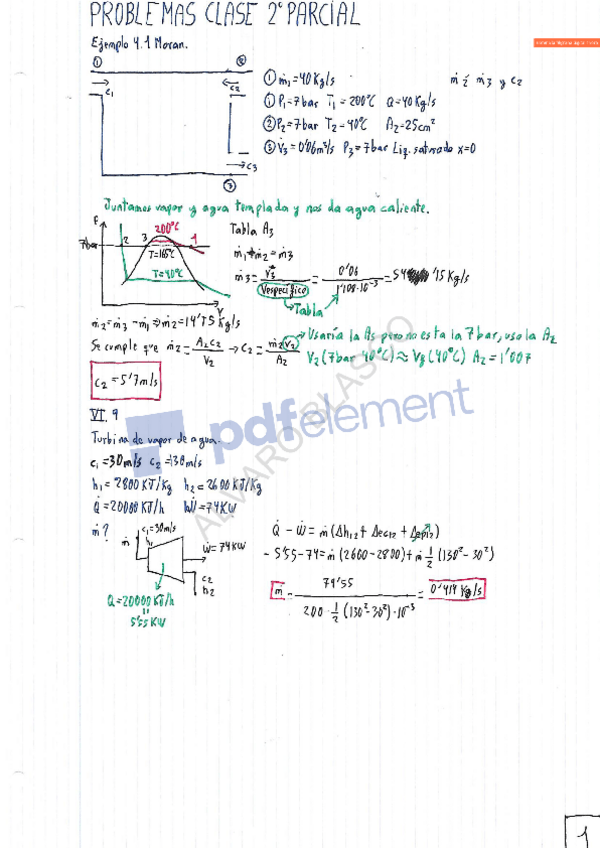 PROBLEMAS CLASE 2º PARCIAL
Ejemplo 4.1 Moran.
① ② 
c₁ c₂
c₃
③
① ṁ₁=40Kg/s ṁ₂ ṁ₃ y c₂
① P₁=7bar T₁=200°C Q=40Kg/s
② P₂=7bar T₂=40°C A₂=25cm²
③ V̇₃=0'06m³/s P₃=7bar Liq. saturado x=0
Juntamos vapor y agua templada y nos da agua caliente.
P
200°C
7bar 2 3 1
T=165°C
T=40°C
V
Tabla A₃
ṁ₁+ṁ₂=ṁ₃
ṁ₃= V̇₃ / Vespecífico = 0'06 / 1'108·10⁻³ = 54'15Kg/s
Tabla
ṁ₂=ṁ₃-ṁ₁⇒ṁ₂=14'15Kg/s
Se cumple que ṁ₂= A₂c₂ / V₂ → c₂= ṁ₂V₂ / A₂
Usaría la A₅ pero no esta la 7bar, uso la A₂
V₂(7bar 40°C)≈Vf(40°C) A₂=1'007
c₂=5'7m/s
VI.9
Turbina de vapor de agua.
c₁=30m/s c₂=130m/s
h₁=2800KJ/Kg h₂=2600KJ/Kg
Q̇=20000KJ/h Ẇ=74KW
ṁ?
c₁=30m/s
ṁ h₁
Ẇ=74KW
c₂
h₂
Q=20000KJ/h
5'55KW
Q̇-Ẇ=ṁ(Δh₁₂+Δec₁₂+Δep₁₂)
-5'55-74=ṁ(2600-2800)+ṁ 1/2 (130²-30²)
ṁ = 79'55 / 200·1/2(130²-30²)·10⁻³ = 0'414Kg/s
pdfelement
ALVARO BLASCO
1